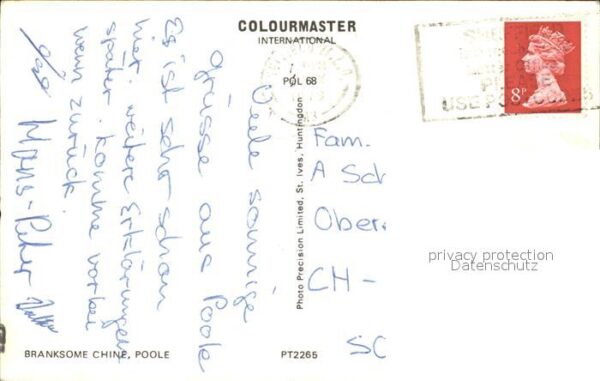 COLOURMASTER
INTERNATIONAL
POL 68
Viele sonnige
grüsse aus Poole
Es ist sehr schön
hier. weitere Erklärungen
später. komme vorbei
wenn zurück.
Hans-Peter
Photo Precision Limited, St. Ives, Huntingdon
8P
USE POST
Fam.
A Sch
Ober
CH -
SC
privacy protection
Datenschutz
BRANKSOME CHINE, POOLE
PT2265